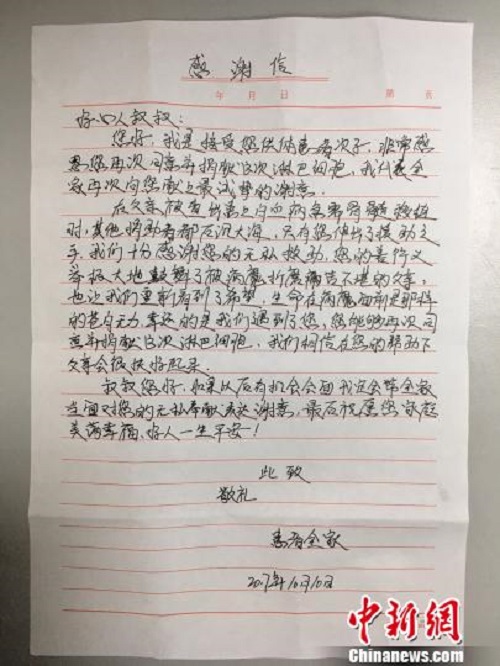 感谢信
年 月 日 第 页
好心人叔叔：
您好，我是接受您供体患者次子，非常感
恩您再次同意并捐献这次淋巴细胞，我代表全
家再次向您献上最诚挚的谢意。
在父亲被查出患上白血病急需骨髓移植
时，其他捐助者都石沉大海，只有您伸出了援助之
手，我们十分感谢您的无私援助，您的善行义
举极大地鼓舞了被病魔折磨痛苦不堪的父亲，
也让我们重新看到了希望，生命在病魔面前是那样
的苍白无力，幸运的是我们遇到了您，您能够再次同
意并捐献这次淋巴细胞，我们相信在您的帮助下
父亲会很快好起来。
叔叔您好，如果以后有机会会面我定会带全家
当面对您的无私奉献表达谢意，最后祝愿您家庭
美满幸福，好人一生平安！
此致
敬礼
患者全家
2017年10月10日
中新网
Chinanews.com